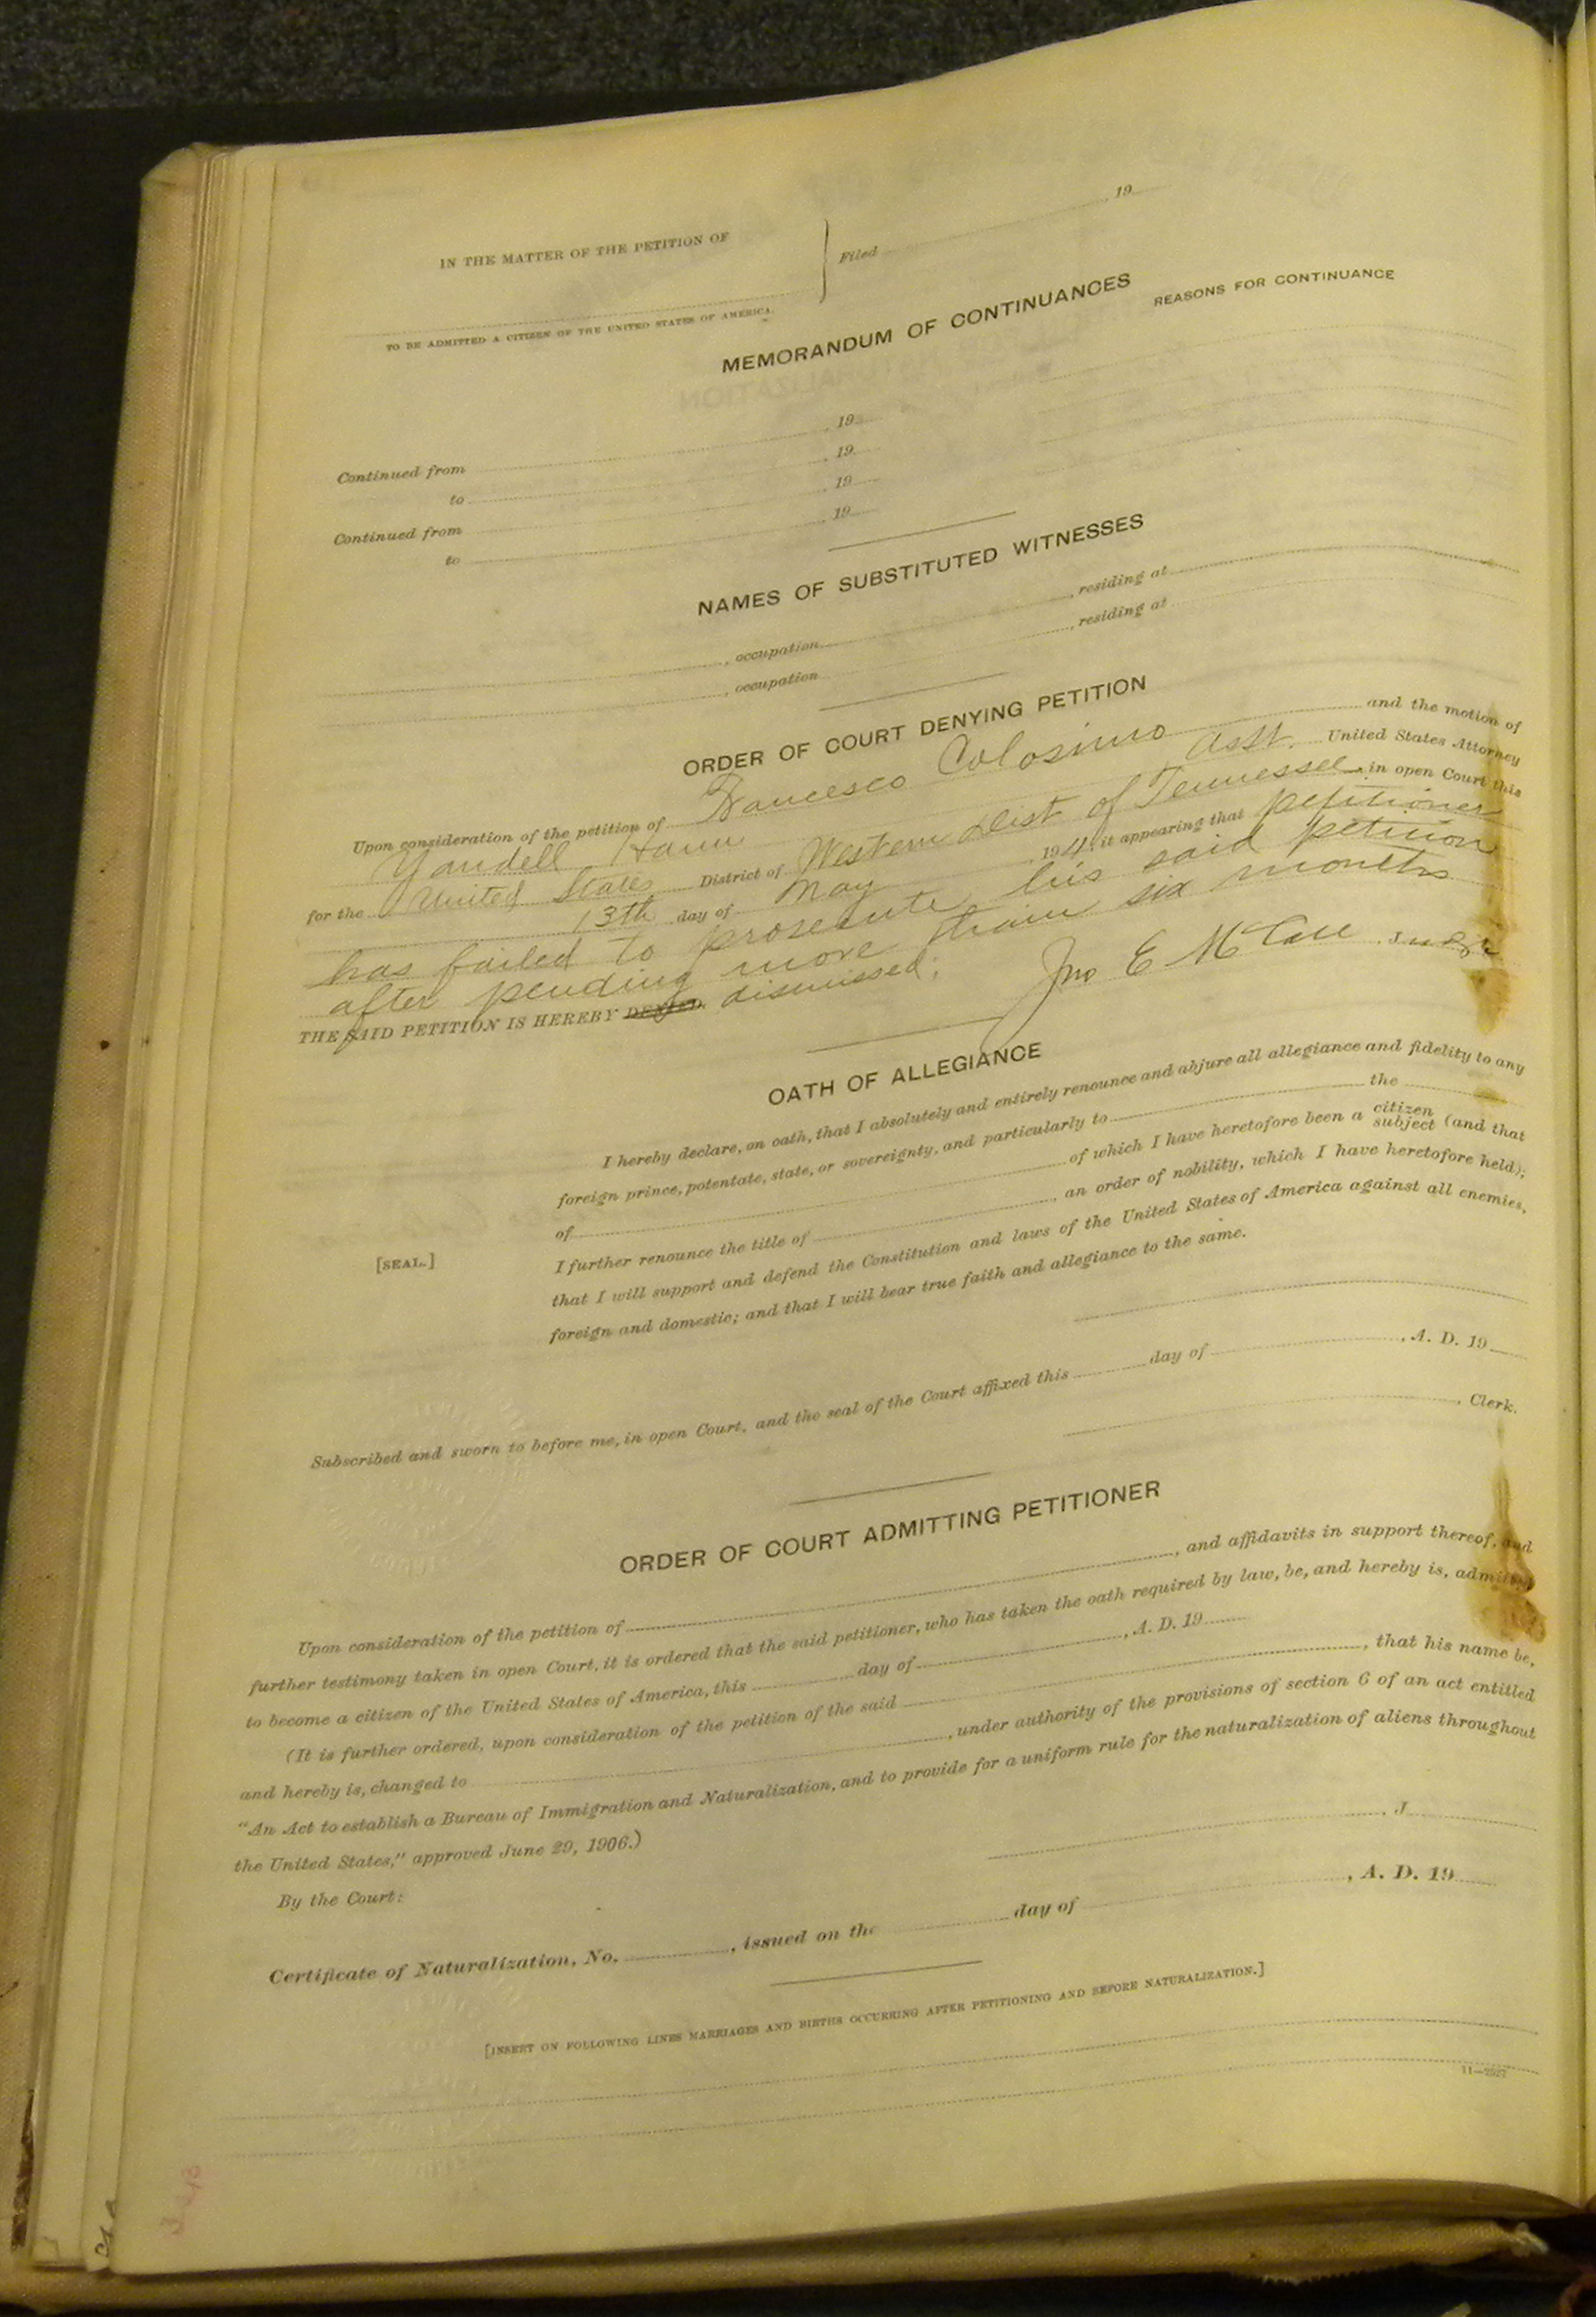 IN THE MATTER OF THE PETITION OF
Filed , 19
TO BE ADMITTED A CITIZEN OF THE UNITED STATES OF AMERICA.
MEMORANDUM OF CONTINUANCES
REASONS FOR CONTINUANCE
Continued from , 19
to , 19
Continued from , 19
to , 19
NAMES OF SUBSTITUTED WITNESSES
, occupation , residing at
, occupation , residing at
ORDER OF COURT DENYING PETITION
Upon consideration of the petition of Francesco Colosimo and the motion of
Yandell Asst. United States Attorney
for the United States District of Western Dist of Tennessee, in open Court this
13th day of May , 19 it appearing that petitioner
has failed to prosecute his said petition
after pending more than six months
THE SAID PETITION IS HEREBY DENIED. dismissed;
Jno E McCall Judge
OATH OF ALLEGIANCE
I hereby declare, on oath, that I absolutely and entirely renounce and abjure all allegiance and fidelity to any
foreign prince, potentate, state, or sovereignty, and particularly to the
of of which I have heretofore been a citizen subject (and that
I further renounce the title of , an order of nobility, which I have heretofore held);
that I will support and defend the Constitution and laws of the United States of America against all enemies,
foreign and domestic; and that I will bear true faith and allegiance to the same.
[SEAL.]
Subscribed and sworn to before me, in open Court, and the seal of the Court affixed this day of , A. D. 19
, Clerk.
ORDER OF COURT ADMITTING PETITIONER
Upon consideration of the petition of , and affidavits in support thereof, and
further testimony taken in open Court, it is ordered that the said petitioner, who has taken the oath required by law, be, and hereby is, admitted
to become a citizen of the United States of America, this day of , A. D. 19
(It is further ordered, upon consideration of the petition of the said , that his name be,
and hereby is, changed to , under authority of the provisions of section 6 of an act entitled
"An Act to establish a Bureau of Immigration and Naturalization, and to provide for a uniform rule for the naturalization of aliens throughout
the United States," approved June 29, 1906.)
By the Court:
, J
Certificate of Naturalization, No. , issued on the day of , A. D. 19
[INSERT ON FOLLOWING LINES MARRIAGES AND BIRTHS OCCURRING AFTER PETITIONING AND BEFORE NATURALIZATION.]